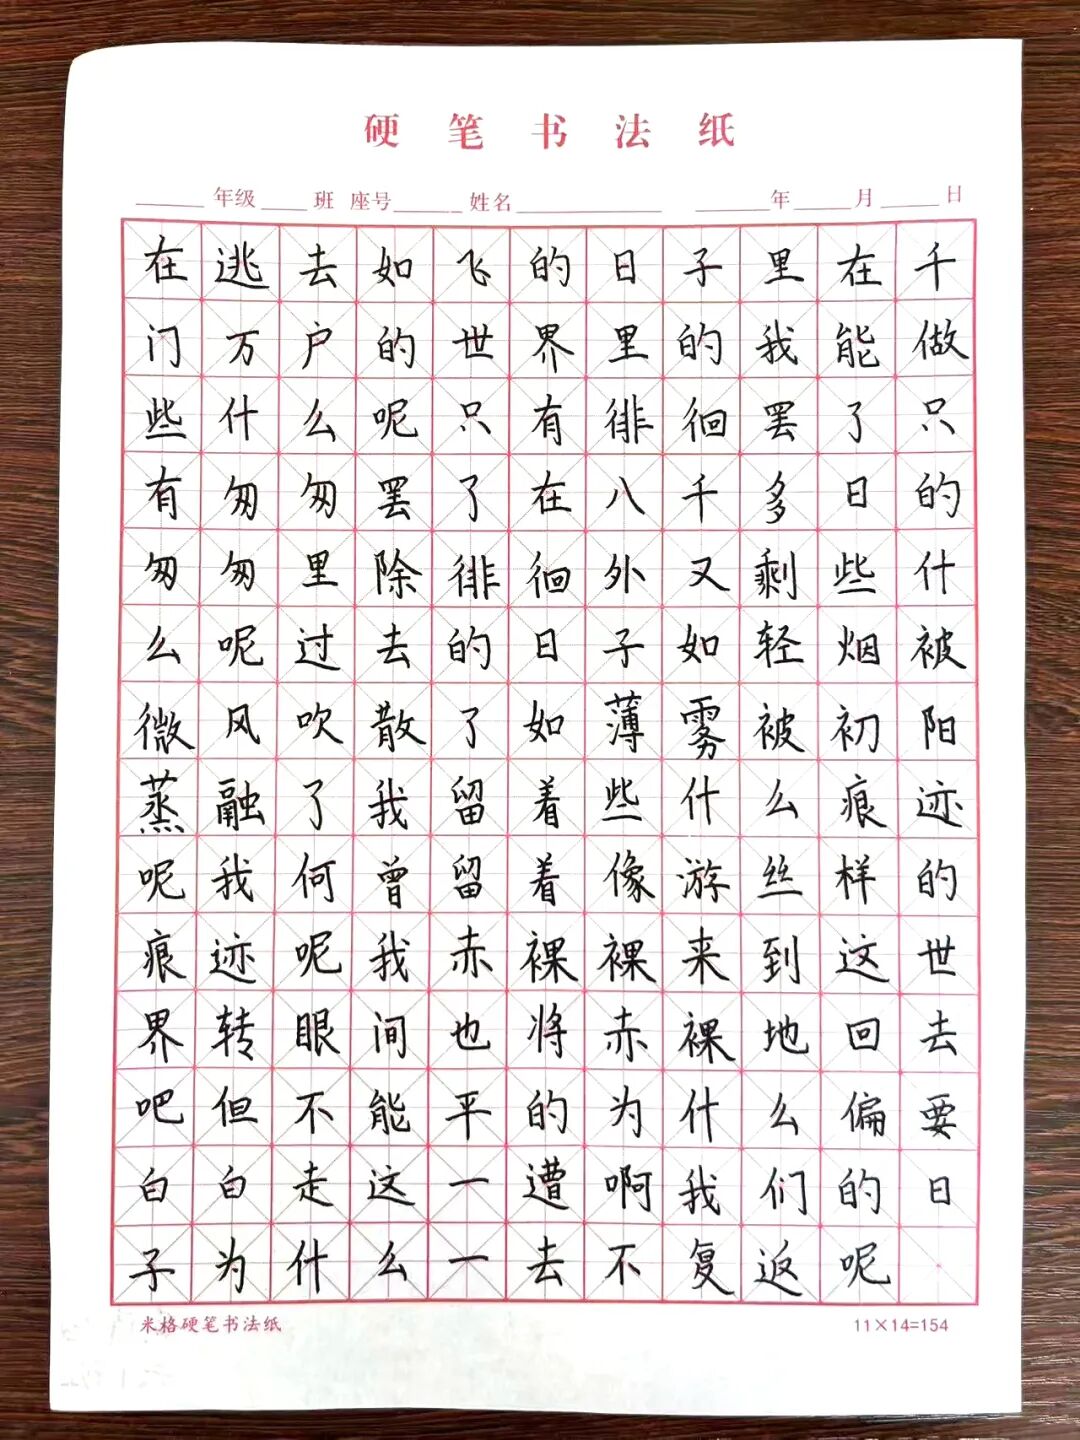 硬笔书法纸
年级 班 座号 姓名 年 月 日
在逃去如飞的日子里在千
门万户的世界里的我能做
些什么呢只有徘徊罢了只
有匆匆罢了在八千多日的
匆匆里除徘徊外又剩些什
么呢过去的日子如轻烟被
微风吹散了如薄雾被初阳
蒸融了我留着些什么痕迹
呢我何曾留着像游丝样的
痕迹呢我赤裸裸来到这世
界转眼间也将赤裸地回去
吧但不能平的为什么偏要
白白走这一遭啊我们的日
子为什么一去不复返呢
米格硬笔书法纸 11×14=154